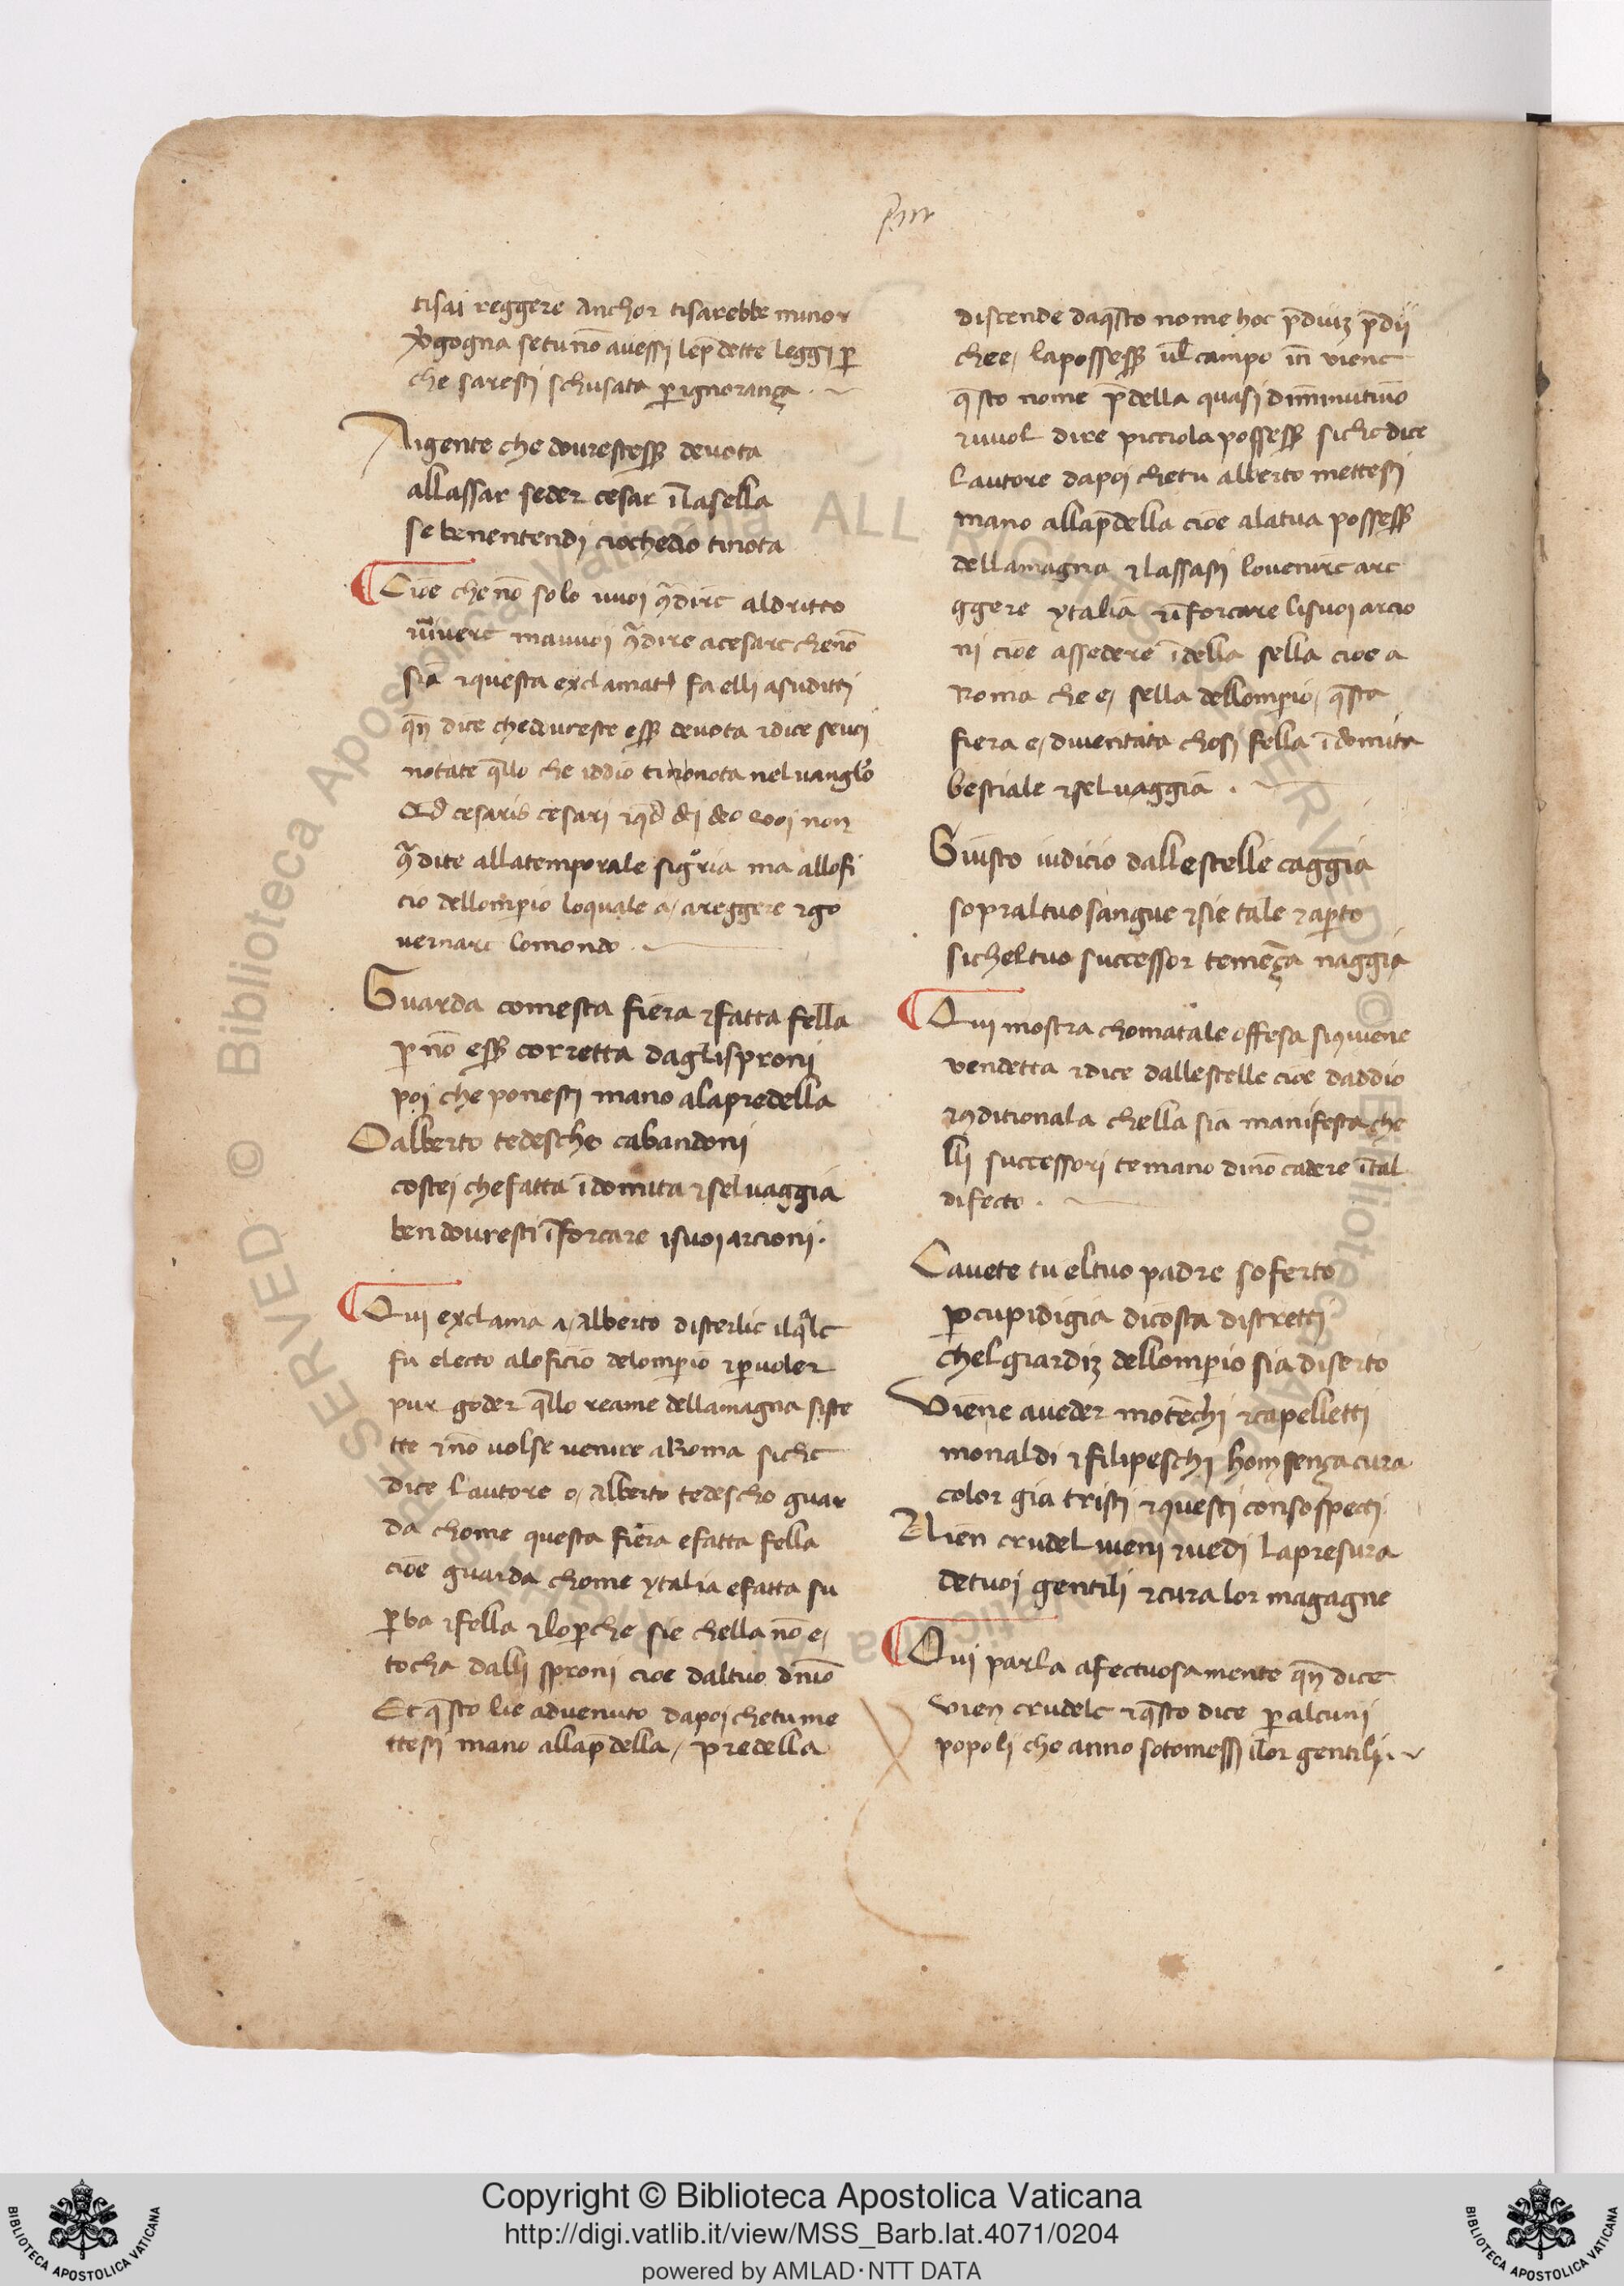 tisai reggere anchor tisarebbe minor
v̄gogna setunō auessj lep̄dette leggj p̱
che sarestj schusata p̱ignorança
Aigente che dourestesß deuota
allassar seder cesar ī lasella
se benentendj ciochedio tinota
Cioe che nō solo uuoj dire aldritto
mauuoi dire acesare chenō
sia ⁊questa exclamatō fa elli asudittj
qn̄ dice chedureste esß deuota ⁊dice seuoj
notate q̄llo che iddio nota nel uangl̄o
Qd̄ cesaris cesarj ⁊qd̄ dēi deo Voi non
dite allatemporale sigōria ma allofi
cio dellomperio loquale a/ areggere ⁊go
uernare lomondo
Guarda comesta fiera ⁊fatta fella
p̱ nō esß corretta daglisproni
poi che ponestj mano alapredella
O alberto tedescho cabandoni
costej chefatta īdomita ⁊seluaggia
ben dourestj īforcare isuoi arcioni.
Qui exclama a/ Alberto disterlic ilq̄le
fu electo aloficio delomperio ⁊p̱uoler
pur goder q̄llo reame dellamagna siste
tte ⁊nō uolse uenire aRoma siche
dice lautore o/ Alberto tedescho guar
da chome questa fiera efatta fella
cioe guarda chome ytalia efatta su
p̱ba ⁊fella ⁊lop̱che sie chella nō e/
tocha dalli sproni cioe daltuo dn̄io
Et q̄sto lie aduenuto dapoi chetu me
ttestj mano allap̄della/ predella
discende daq̄sto nome hoc p̄diuȝ p̄dij
chee/ lapossesß ul̄ campo in̄ uiene
q̄sto nome p̄della quasj diminutiuo
⁊uuol dire picciola possesß siche dice
lautore dapoj chetu alberto mettestj
mano allap̄della cioe alatua possesß
dellamagna ⁊lassastj louenire are
ggere ytalia ⁊īforcare lisuoi arcio
ni cioe assedere īdella sella cioe a
Roma che e/ sella dellomp̱io/ q̄sta
fiera e/ diuentata chosj fella īdomita
bestiale ⁊seluaggia.
Giusto iudicio dallestelle caggia
sopraltuo sangue ⁊sie tale ⁊ap̱to
sicheltuo successor temēça naggia
Qui mostra chomatale offesa siuiene
vendetta ⁊dice dallestelle cioe daddio
⁊ditionala chella sia manifesta che
lli successori temano dinō cadere ītal
difecto.
Cauete tu eltuo padre soferto
p̱cupidigia dicosta distrettj
chelgiardiȝ dellomperio sia diserto
Viene aueder motēchi ⁊capellettj
monaldi ⁊filipeschj hom sença cura
color gia tristj ⁊questj consospectj
Vien crudel uieni ⁊uedj lapresura
detuoj gentili ⁊cura lor magagne
Qui parla afectuosamente qn̄ dice
vien crudele ⁊q̄sto dice p̱alcuni
popolj che anno sotomessj ilor gentilj.
Copyright © Biblioteca Apostolica Vaticana
http://digi.vatlib.it/view/MSS_Barb.lat.4071/0204
powered by AMLAD·NTT DATA